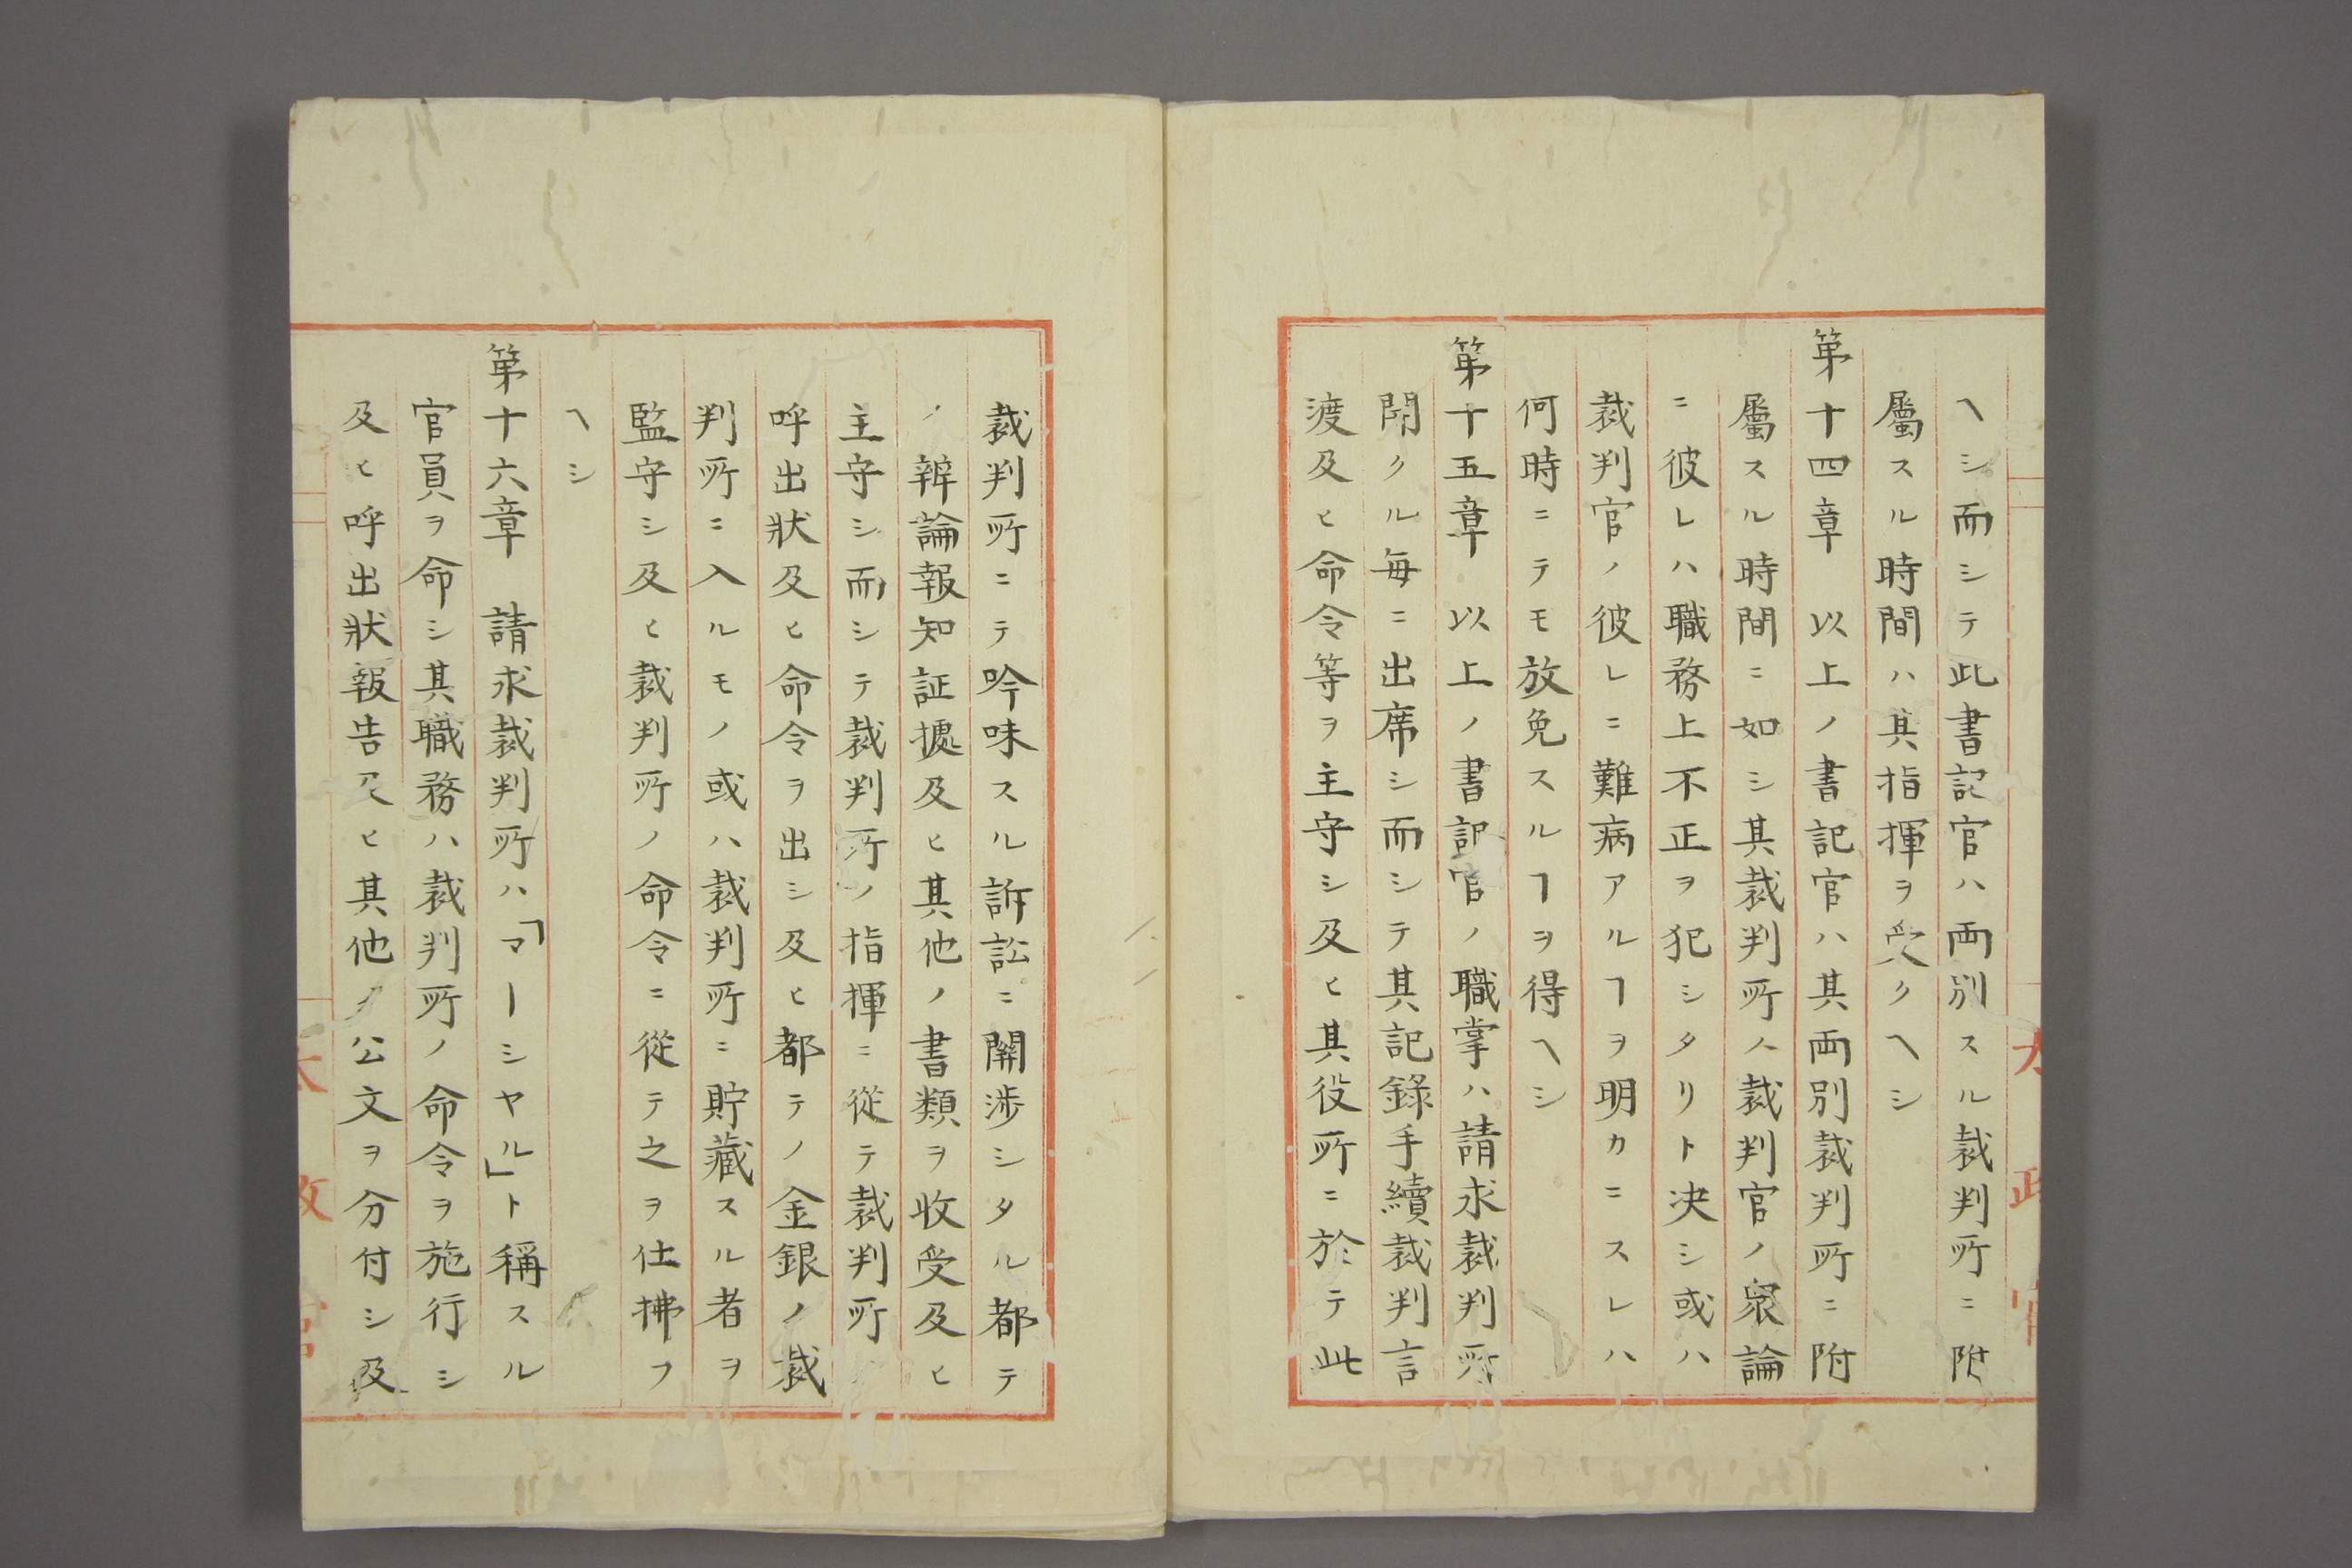 ヘシ而シテ此書記官ハ両別スル裁判所ニ附
屬スル時間ハ其指揮ヲ受クヘシ
第十四章　以上ノ書記官ハ其両別裁判所ニ附
屬スル時間ニ如シ其裁判所ノ裁判官ノ衆論
ニ彼レハ職務上不正ヲ犯シタリト决シ或ハ
裁判官ノ彼レニ難病アルヿヲ明カニスレハ
何時ニテモ放免スルヿヲ得ヘシ
第十五章　以上ノ書記官ノ職掌ハ請求裁判所
開クル毎ニ出席シ而シテ其記錄手續裁判言
渡及ヒ命令等ヲ主守シ及ヒ其役所ニ於テ此
裁判所ニテ吟味スル訴訟ニ関渉シタル都テ
ノ辨論報知証據及ヒ其他ノ書類ヲ收受及ヒ
主守シ而シテ裁判所ノ指揮ニ從テ裁判所
呼出狀及ヒ命令ヲ出シ及ヒ都テノ金銀ノ裁
判所ニ入ルモノ或ハ裁判所ニ貯藏スル者ヲ
監守シ及ヒ裁判所ノ命令ニ從テ之ヲ仕拂フ
ヘシ
第十六章　請求裁判所ハ「マーシヤル」ト稱スル
官員ヲ命シ其職務ハ裁判所ノ命令ヲ施行シ
及ヒ呼出狀報告及ヒ其他ノ公文ヲ分付シ及